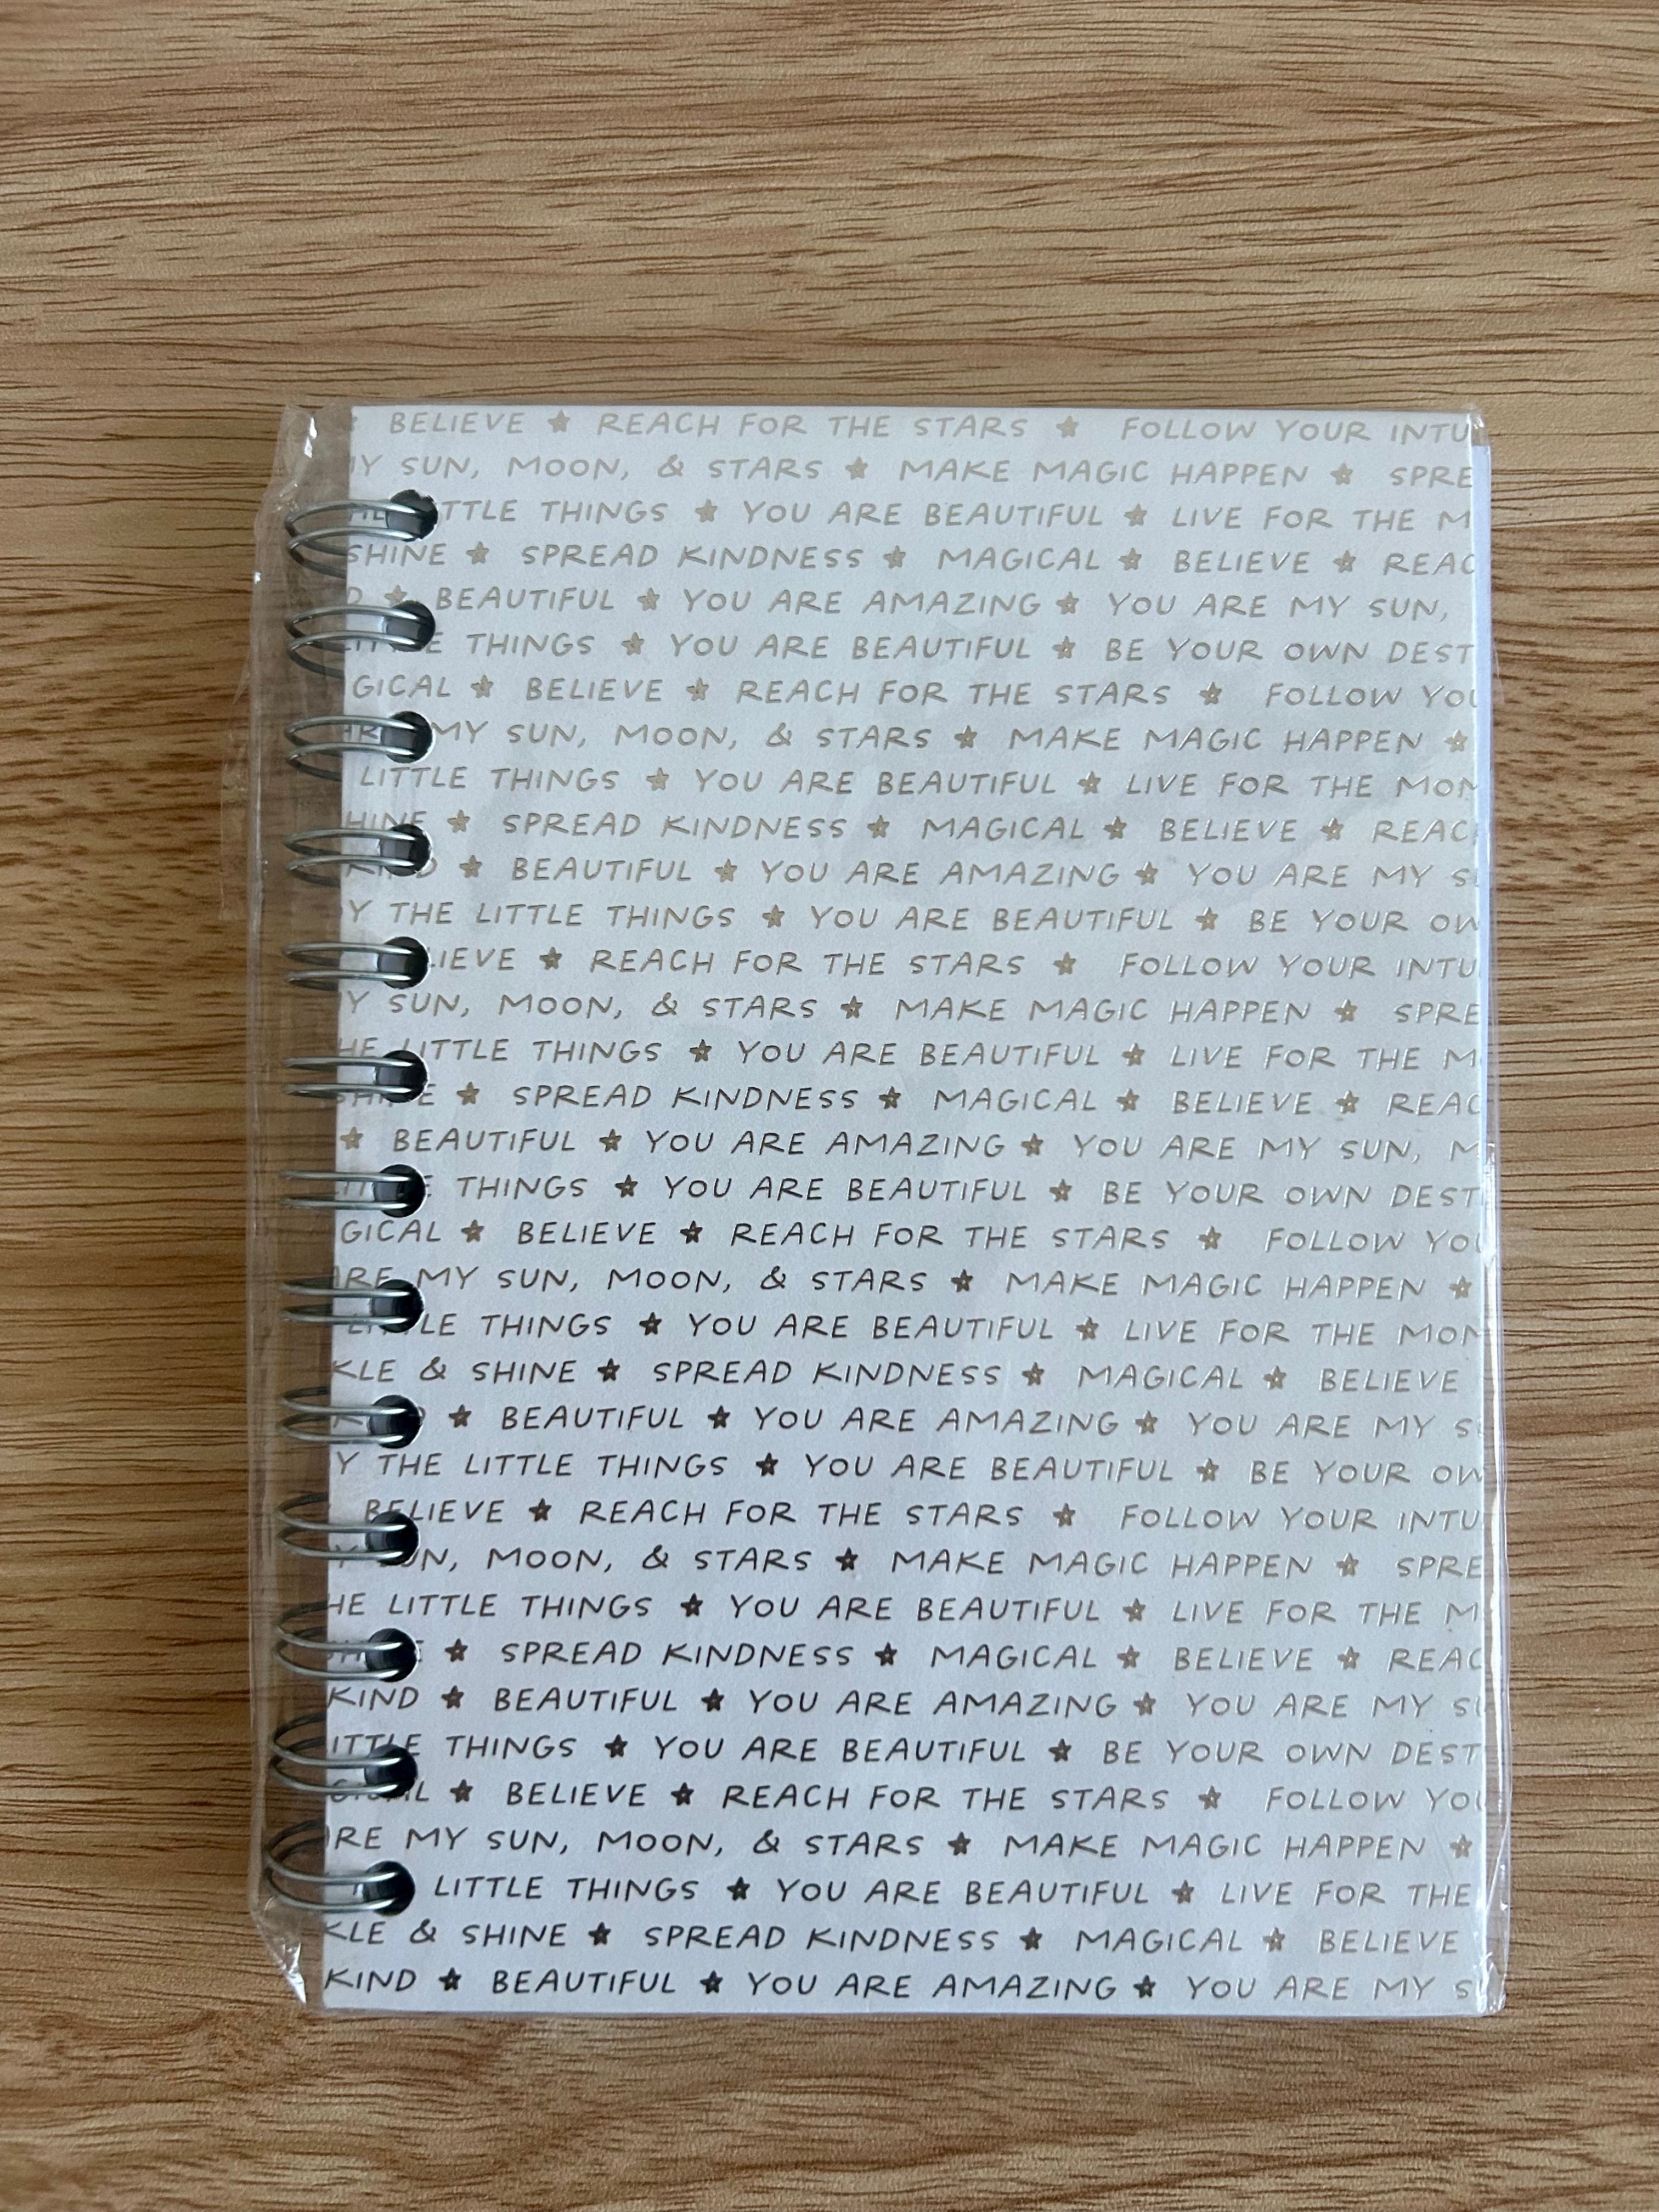 BELIEVE ★ REACH FOR THE STARS ★ FOLLOW YOUR INTU
MY SUN, MOON, & STARS ★ MAKE MAGIC HAPPEN ★ SPRE
TTLE THINGS ★ YOU ARE BEAUTIFUL ★ LIVE FOR THE M
SHINE ★ SPREAD KINDNESS ★ MAGICAL ★ BELIEVE ★ REAC
D ★ BEAUTIFUL ★ YOU ARE AMAZING ★ YOU ARE MY SUN,
THINGS ★ YOU ARE BEAUTIFUL ★ BE YOUR OWN DEST
GICAL ★ BELIEVE ★ REACH FOR THE STARS ★ FOLLOW YOU
MY SUN, MOON, & STARS ★ MAKE MAGIC HAPPEN ★
LITTLE THINGS ★ YOU ARE BEAUTIFUL ★ LIVE FOR THE MOM
HINE ★ SPREAD KINDNESS ★ MAGICAL ★ BELIEVE ★ REACH
★ BEAUTIFUL ★ YOU ARE AMAZING ★ YOU ARE MY SU
Y THE LITTLE THINGS ★ YOU ARE BEAUTIFUL ★ BE YOUR OW
LIEVE ★ REACH FOR THE STARS ★ FOLLOW YOUR INTU
Y SUN, MOON, & STARS ★ MAKE MAGIC HAPPEN ★ SPRE
HE LITTLE THINGS ★ YOU ARE BEAUTIFUL ★ LIVE FOR THE M
★ SPREAD KINDNESS ★ MAGICAL ★ BELIEVE ★ REAC
★ BEAUTIFUL ★ YOU ARE AMAZING ★ YOU ARE MY SUN, M
THINGS ★ YOU ARE BEAUTIFUL ★ BE YOUR OWN DEST
GICAL ★ BELIEVE ★ REACH FOR THE STARS ★ FOLLOW YOU
ARE MY SUN, MOON, & STARS ★ MAKE MAGIC HAPPEN ★
LITTLE THINGS ★ YOU ARE BEAUTIFUL ★ LIVE FOR THE MOM
KLE & SHINE ★ SPREAD KINDNESS ★ MAGICAL ★ BELIEVE
★ BEAUTIFUL ★ YOU ARE AMAZING ★ YOU ARE MY S
Y THE LITTLE THINGS ★ YOU ARE BEAUTIFUL ★ BE YOUR OW
BELIEVE ★ REACH FOR THE STARS ★ FOLLOW YOUR INTU
UN, MOON, & STARS ★ MAKE MAGIC HAPPEN ★ SPRE
HE LITTLE THINGS ★ YOU ARE BEAUTIFUL ★ LIVE FOR THE M
★ SPREAD KINDNESS ★ MAGICAL ★ BELIEVE ★ REAC
KIND ★ BEAUTIFUL ★ YOU ARE AMAZING ★ YOU ARE MY SU
ITTLE THINGS ★ YOU ARE BEAUTIFUL ★ BE YOUR OWN DEST
★ BELIEVE ★ REACH FOR THE STARS ★ FOLLOW YOU
ARE MY SUN, MOON, & STARS ★ MAKE MAGIC HAPPEN ★
LITTLE THINGS ★ YOU ARE BEAUTIFUL ★ LIVE FOR THE
KLE & SHINE ★ SPREAD KINDNESS ★ MAGICAL ★ BELIEVE
KIND ★ BEAUTIFUL ★ YOU ARE AMAZING ★ YOU ARE MY S